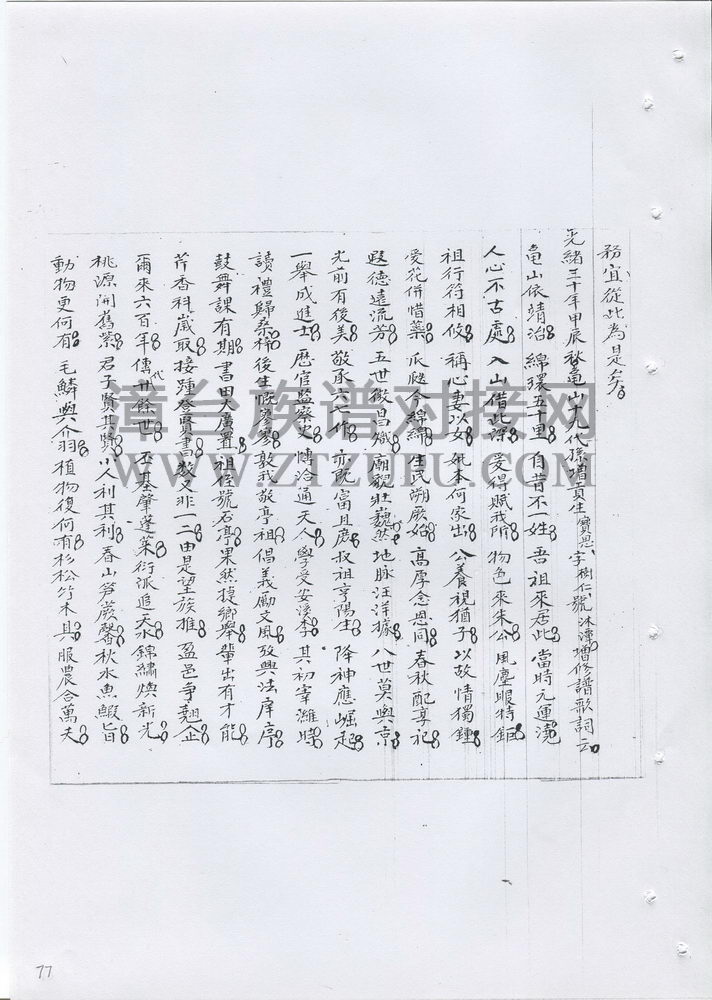 務宜從此為是矣
光緒三十年甲辰秋龜山十九代孫增貢生寶恩字樹仁號沐潭增修譜歌詞云
龜山依靖治綿環五十里自昔不一姓吾祖來居此當時元運澆
人心不古處入山借此深爰得賦我所物色來朱公風塵眼特鉅
祖行符相攸稱心妻以女氣本何家出公養視猶子以故情獨鍾
愛花併惜藥瓜瓞今綿綿生民朔厥始高厚念恩同春秋配享祀
遐德遠流芳五世徵昌熾廟貌壯巍然地脉汪洋據八世莫與京
光前有後美敬承六七作亦既富且庶叔祖亨陽生降神應崛起
一舉成進士歷官監察史博洽通天人學受安溪李其初宰濰時
讀禮歸桑梓後生嘅寥寥敦我敬亭祖倡義勵文風攷興法庠序
鼓舞課有期書田大廣置祖侄號石亭果然捷鄉舉輩出有才能
芹香科歲取接踵登賢書數又非一二由是望族推盈邑爭翹企
爾來六百年傳卋代餘世丕基肇蓬萊衍派追天水錦繡煥新光
桃源開舊縈君子賢其賢小人利其利春山笋蕨馨秋水魚鰕旨
動物更何有毛鱗與介羽植物復何有杉松竹木具服農合萬夫
漳台族谱对接网
WWW.ZTZUPU.COM
77